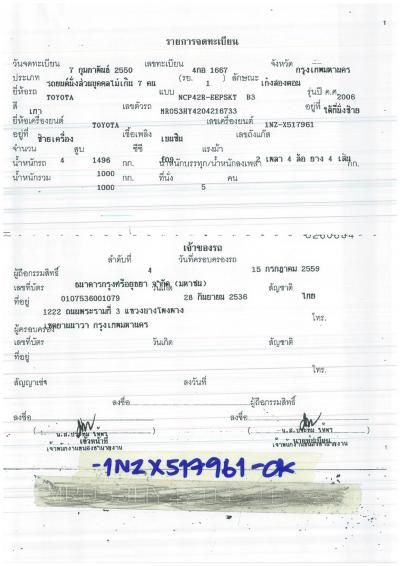 รายการจดทะเบียน
วันจดทะเบียน 7 กุมภาพันธ์ 2550 เลขทะเบียน 4กอ 1667 จังหวัด กรุงเทพมหานคร
ประเภท รถยนต์นั่งส่วนบุคคลไม่เกิน 7 คน (รย. 1 ) ลักษณะ เก๋งสองตอน
ยี่ห้อรถ TOYOTA แบบ NCP42R-EEPSKT B3 รุ่นปี ค.ศ. 2006
สี เทา เลขตัวรถ MR053HY4204216733 อยู่ที่ ใต้ที่นั่งซ้าย
ยี่ห้อเครื่องยนต์ TOYOTA เลขเครื่องยนต์ 1NZ-X517961
อยู่ที่ ซ้ายเครื่อง เชื้อเพลิง เบนซิน เลขถังแก๊ส
จำนวน 4 สูบ 1496 ซีซี 109 แรงม้า 2 เพลา 4 ล้อ ยาง 4 เส้น
น้ำหนักรถ 1000 กก. น้ำหนักบรรทุก/น้ำหนักลงเพลา กก.
น้ำหนักรวม 1000 กก. ที่นั่ง 5 คน
เจ้าของรถ
ลำดับที่ 4 วันที่ครอบครองรถ 15 กรกฎาคม 2559
ผู้ถือกรรมสิทธิ์ ธนาคารกรุงศรีอยุธยา จำกัด (มหาชน)
เลขที่บัตร 0107536001079 วันเกิด 28 กันยายน 2536 สัญชาติ ไทย
ที่อยู่ 1222 ถนนพระรามที่ 3 แขวงบางโพงพาง
เขตยานนาวา กรุงเทพมหานคร โทร.
ผู้ครอบครอง
เลขที่บัตร วันเกิด สัญชาติ
ที่อยู่
โทร.
สัญญาเช่า ลงวันที่
ลงชื่อ ผู้ถือกรรมสิทธิ์
ลงชื่อ ลงชื่อ
เจ้าหน้าที่ นายทะเบียน
-1NZX517961-OK